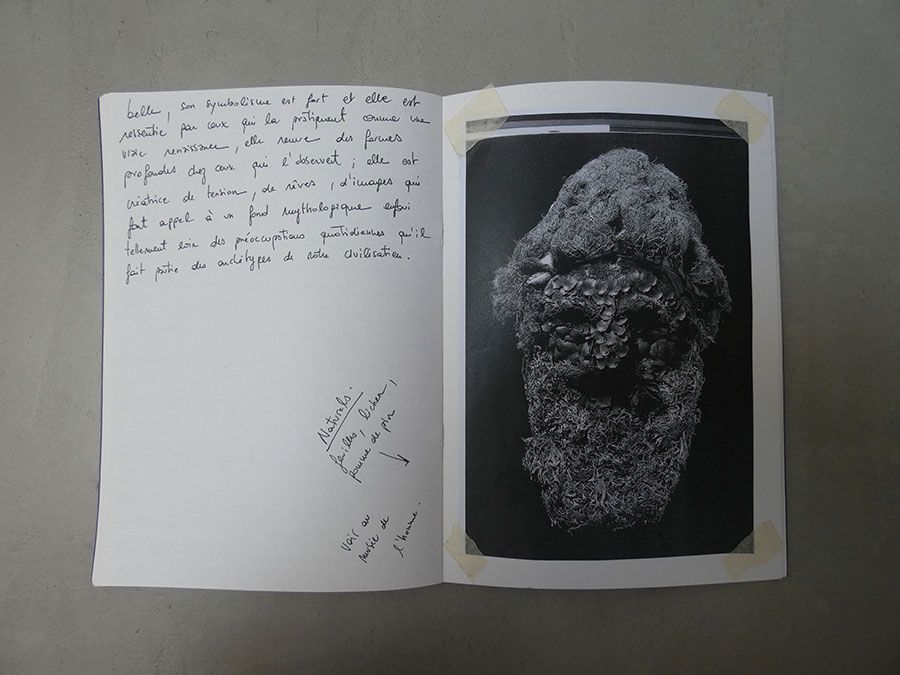 belle, son symbolisme est fort et elle est
ressentie par ceux qui la pratiquent comme une
vraie renaissance, elle remue des formes
profondes chez ceux qui l'observent ; elle est
créatrice de tension, de rêves, d'images qui
font appel à un fond mythologique enfoui
tellement loin des préoccupations quotidiennes qu'il
fait partie des archétypes de notre civilisation.
Naturels.
feuilles, lichen,
pomme de pin
Voir au
musée de
l'homme.